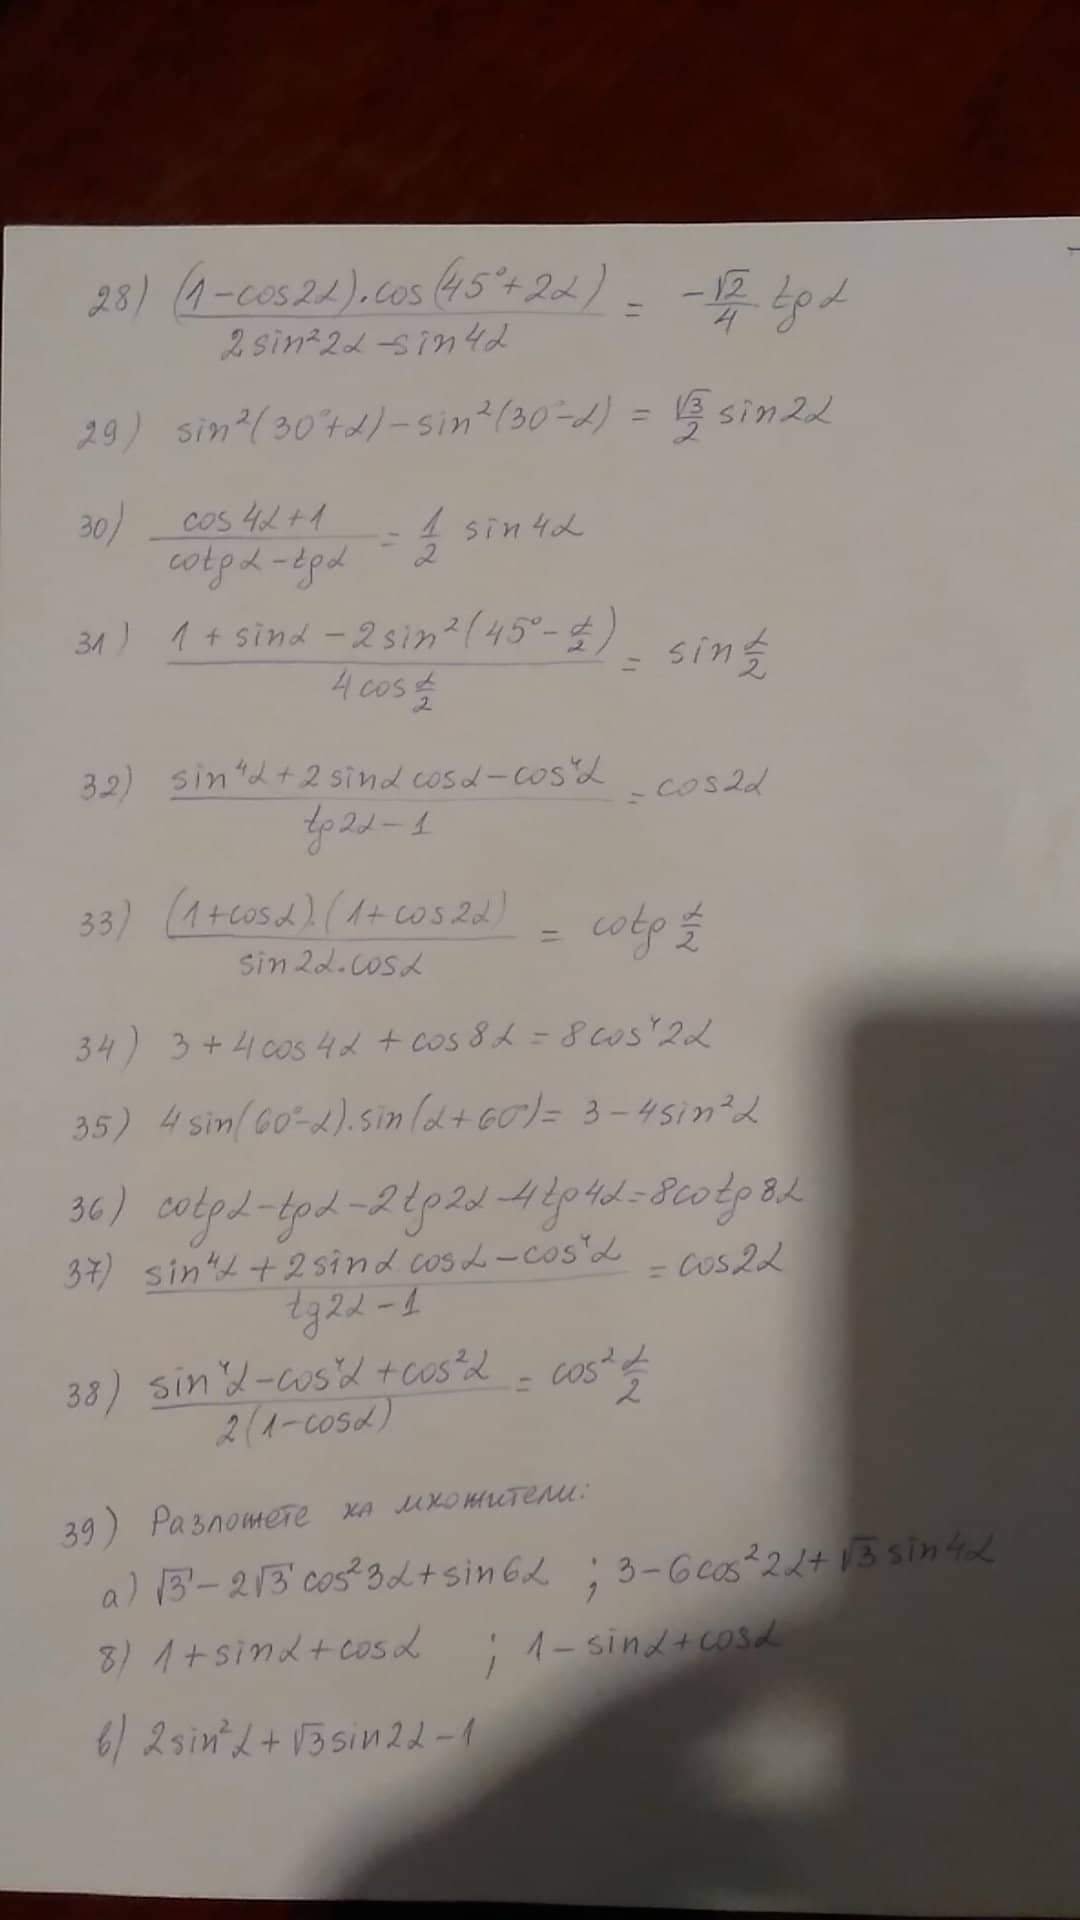 28) (1-cos2α).cos(45°+2α) / 2sin²2α-sin4α = -√2/4 tgα
29) sin²(30°+α)-sin²(30°-α) = √3/2 sin2α
30) cos4α+1 / cotgα-tgα = 1/2 sin4α
31) 1+sinα-2sin²(45°-α/2) / 4cos α/2 = sin α/2
32) sin⁴α+2sinα cosα-cos⁴α / tg2α-1 = cos2α
33) (1+cosα).(1+cos2α) / sin2α.cosα = cotg α/2
34) 3+4cos4α+cos8α=8cos⁴2α
35) 4sin(60°-α).sin(α+60°)=3-4sin²α
36) cotgα-tgα-2tg2α-4tg4α=8cotg8α
37) sin⁴α+2sinα cosα-cos⁴α / tg2α-1 = cos2α
38) sin⁴α-cos⁴α+cos²α / 2(1-cosα) = cos² α/2
39) Разложете на множители:
а) √3-2√3cos²3α+sin6α ; 3-6cos²2α+√3sin4α
б) 1+sinα+cosα ; 1-sinα+cosα
в) 2sin²α+√3sin2α-1